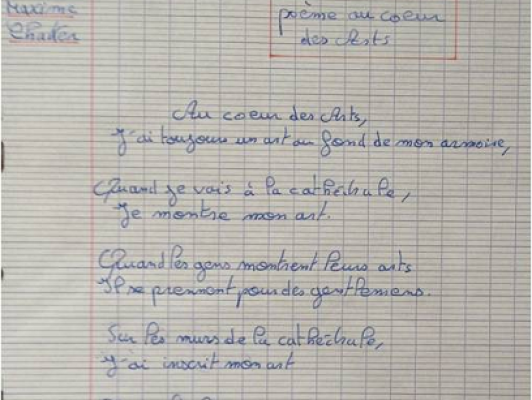 Maxime
poème au coeur
des Arts
Au coeur des Arts,
J'ai toujours un art au fond de mon armoire,
Quand je vais à la cathéchale,
Je montre mon art.
Quand les gens montrent leurs arts
Il se prennont pour des gentlemens.
Sur les murs de la cathéchale,
J'ai inscrit mon art